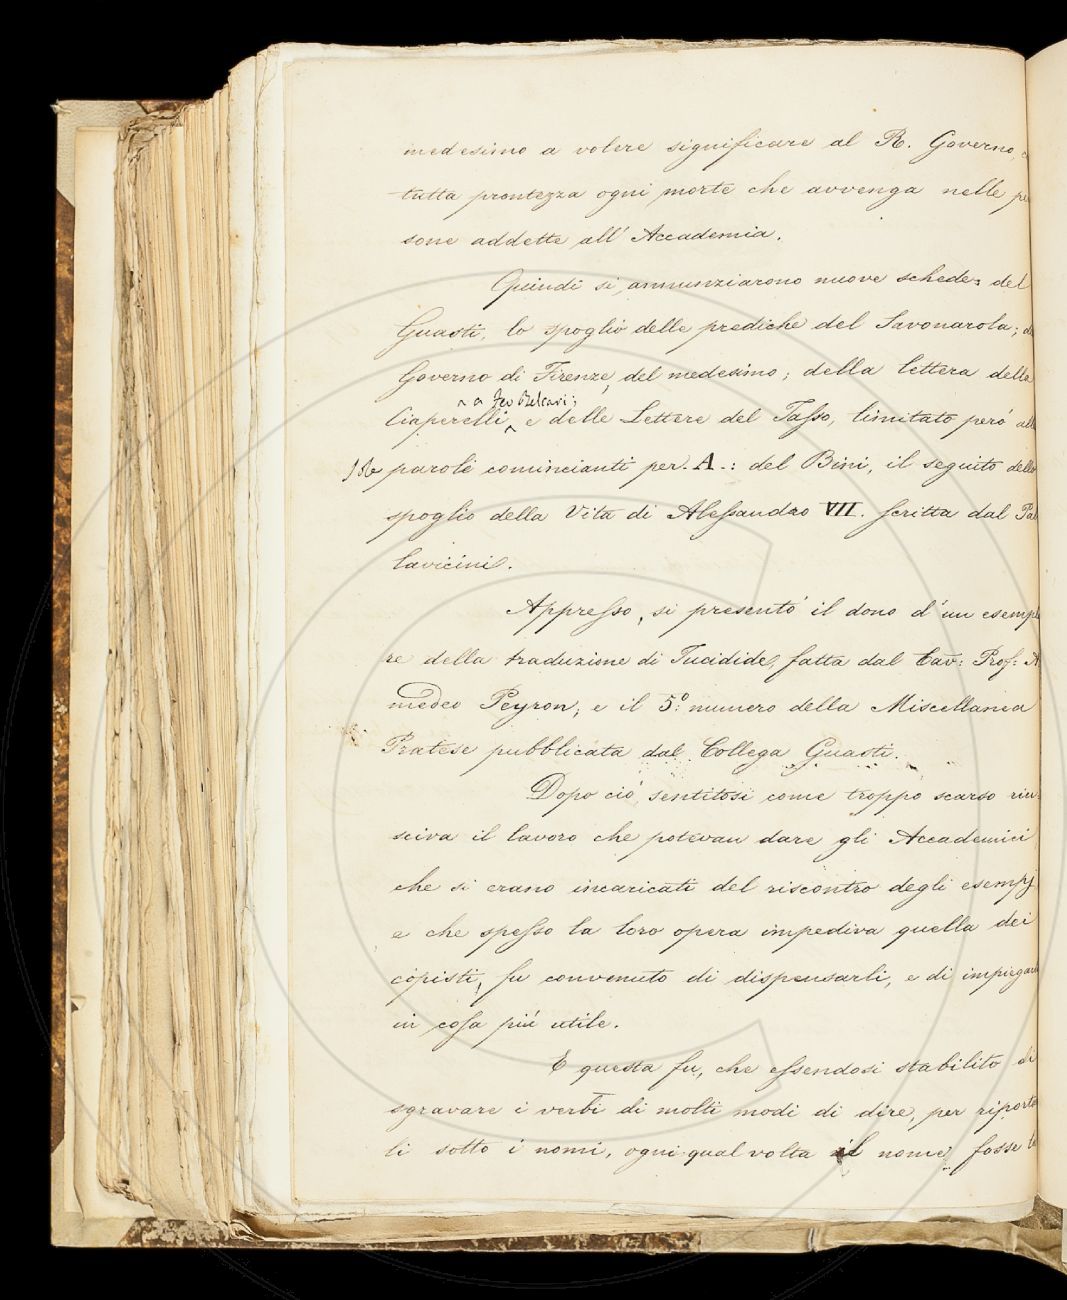 medesimo a volere significare al R. Governo, c
tutta prontezza ogni morte che avvenga nelle pe
sone addette all' Accademia.
Quindi si annunziarono nuove schede: del
Guasti, lo spoglio delle prediche del Savonarola; de
Governo di Firenze, del medesimo; della lettera della
a Feo Belcari;
Ciaperelli, e delle Lettere del Tasso, limitato però alle
parole comincianti per. A.: del Bini, il seguito dello
spoglio della Vita di Alessandro VII. scritta dal Pal
lavicini.
Appresso, si presentò il dono d'un esempla
re della traduzione di Tucidide, fatta dal Cav: Prof: A
medeo Peyron; e il 5º: numero della Miscellanea
Pratese pubblicata dal Collega Guasti.
Dopo ciò, sentitosi come troppo scarso riu-
sciva il lavoro che potevan dare gli Accademici
che si erano incaricati del riscontro degli esempj
e che spesso la loro opera impediva quella dei
copisti, fu convenuto di dispensarli, e di impiegarli
in cosa più utile.
E questa fu, che essendosi stabilito di
sgravare i verbi di molti modi di dire, per riporta
li sotto i nomi, ogni qual volta il nome fosse